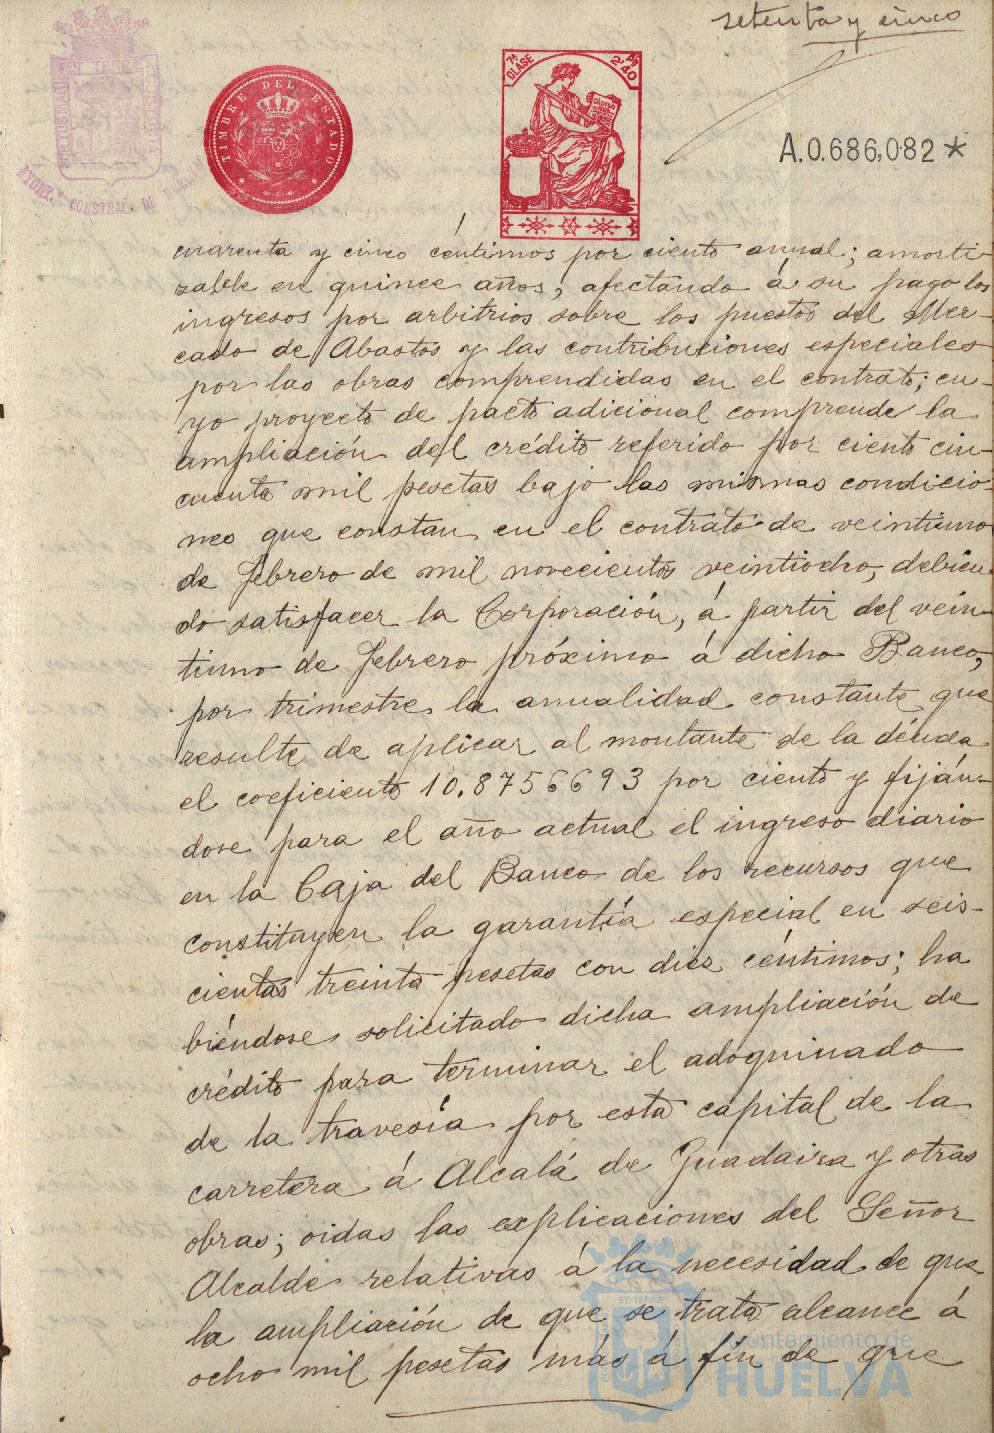 setenta y cinco
TIMBRE DEL ESTADO
7ª CLASE
2'40
A.0.686,082*
cuarenta y cinco céntimos por ciento anual; amorti-
zable en quince años, afectando á su pago los
ingresos por arbitrios sobre los puestos del Mer-
cado de Abastos y las contribuciones especiales
por las obras comprendidas en el contrato; cu-
yo proyecto de pacto adicional comprende la
ampliación del crédito referido por ciento cin-
cuenta mil pesetas bajo las mismas condicio-
nes que constan en el contrato de veintiuno
de febrero de mil novecientos veintiocho, debien-
do satisfacer la Corporación, á partir del vein-
tiuno de febrero próximo á dicho Banco,
por trimestre la anualidad constante que
resulte de aplicar al montante de la deuda
el coeficiente 10.8756693 por ciento y fiján-
dose para el año actual el ingreso diario
en la Caja del Banco de los recursos que
constituyen la garantía especial en seis-
cientas treinta pesetas con diez céntimos; ha
biéndose solicitado dicha ampliación de
crédito para terminar el adoquinado
de la travesía por esta capital de la
carretera á Alcalá de Guadaira y otras
obras; oidas las explicaciones del Señor
Alcalde relativas á la necesidad de que
la ampliación de que se trata alcance á
ocho mil pesetas más á fín de que
Ayuntamiento de
HUELVA